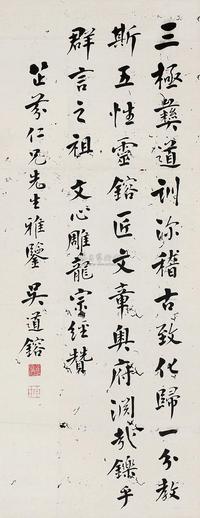 三極彝道訓深稽古致化歸一分教
斯五性靈鎔匠文章奧府淵哉鑠乎
群言之祖 文心雕龍宗經贊
芷芬仁兄先生雅鑒 吳道鎔